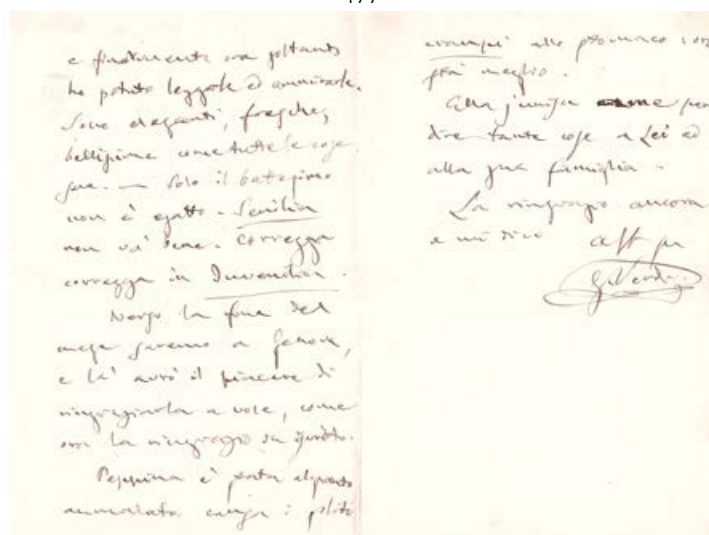 e finalmente ora soltanto
ho potuto leggerle ed ammirarle.
Sono eleganti, fresche,
bellissime come tutte le cose
sue. — Solo il battesimo
non è esatto. Senilia
non va' bene. Corregga
corregga in Juvenilia.
Verso la fine del
mese saremo a Genova,
e là avrò il piacere di
ringraziarla a voce, come
ora la ringrazio in iscritto.
Peppina è stata alquanto
ammalata causa i soliti
crampi allo stomaco: ora
sta meglio.
Ella s'unisce per
dire tante cose a Lei ed
alla sua famiglia.
La ringrazio ancora
e mi dico aff
G. Verdi